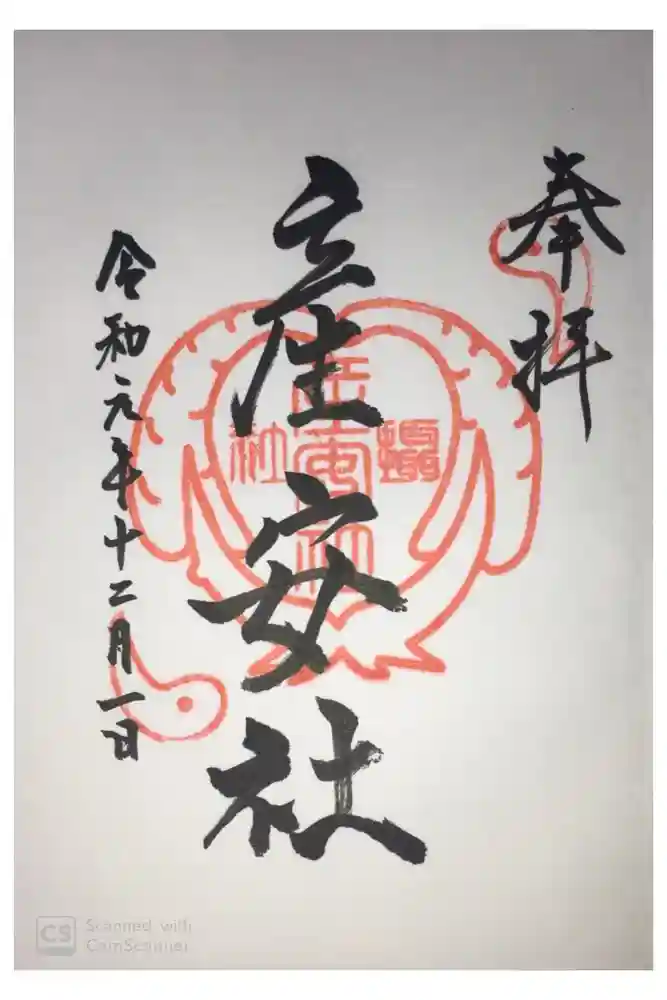 奉拝
産安社
摂社
産安社
令和元年十二月一日
CS Scanned with
CamScanner